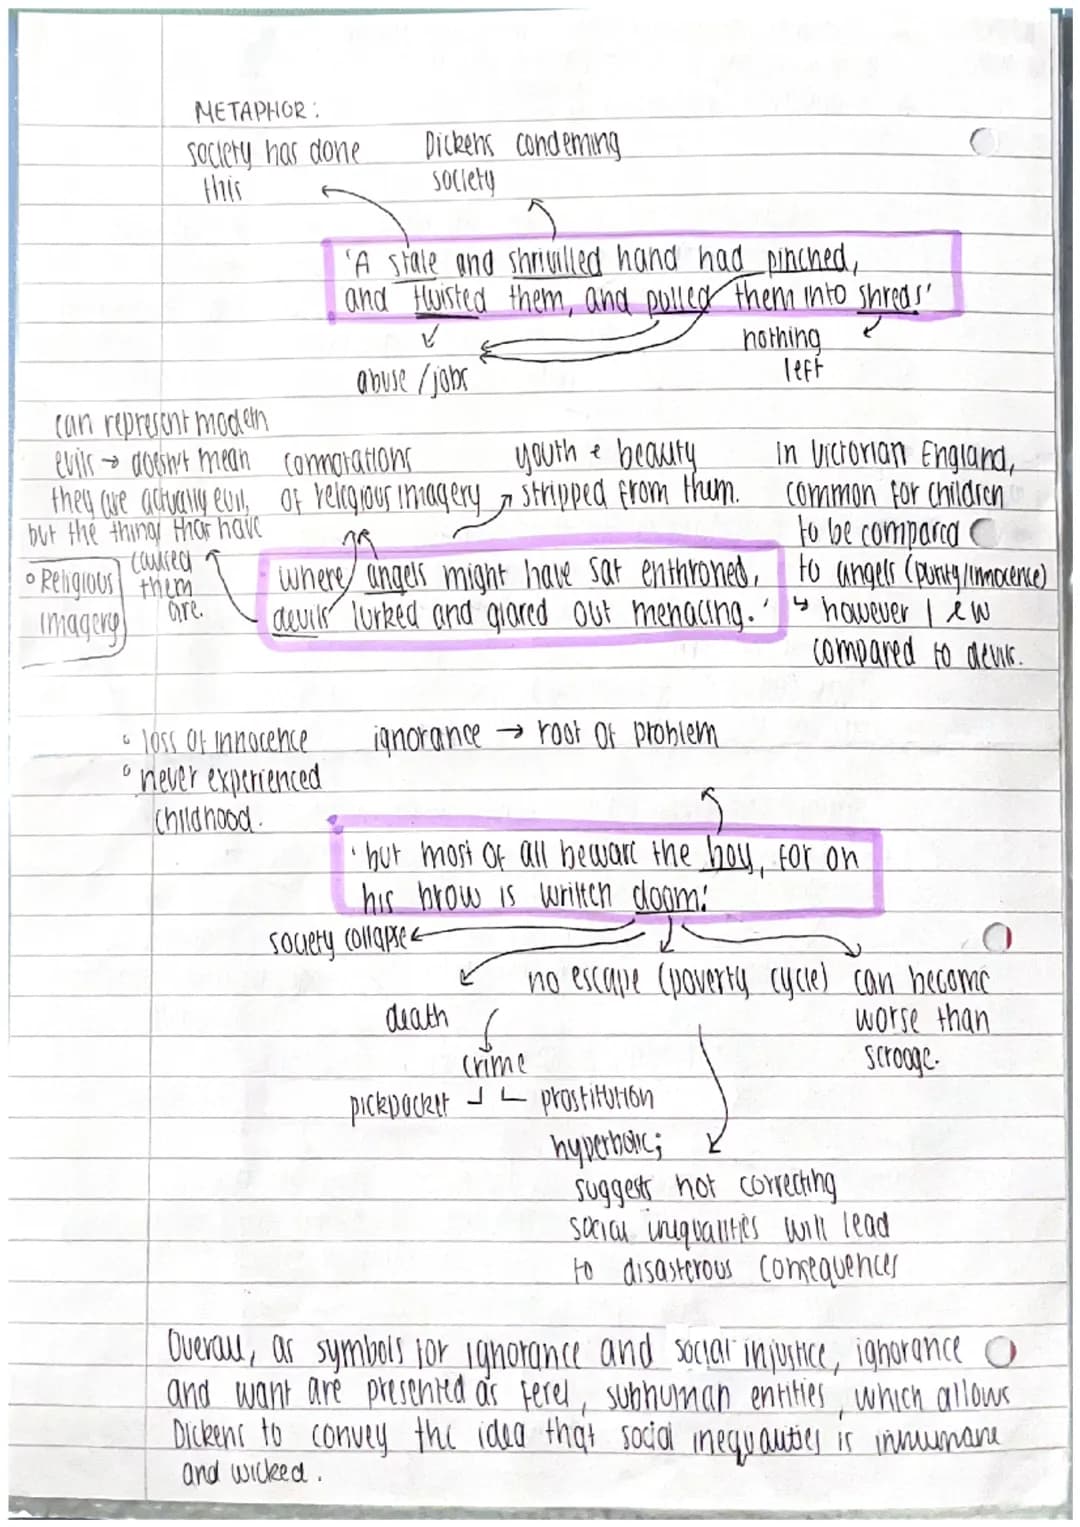 METAPHOR:
society has done
this
Dickens condeming
society
'A stale and shrivilled hand had pinched,
and twisted them, and pulled them into shreds'
abuse / jobs
nothing
left
can represent modern
evils → doesn't mean
they are actually evil,
but the things that have
caused
them
are.
connotations
of religious imagery
youth & beauty
stripped from them.
in Victorian England,
common for children
to be compared
to angels (purity/innocence)
↳ however I & W
compared to devils.
° Religious
imagery
'where angels might have sat enthroned,
devils lurked and glared out menacing.'
° loss of innocence
° never experienced
childhood.
ignorance → root of problem
'but most of all beware the boy, for on
his brow is written doom:
society collapse
death
crime
pickpocket
prostitution
no escape (poverty cycle)
can become
worse than
scrooge.
hyperbolic;
suggests not correcting
social inequalities will lead
to disasterous consequences
Overall, as symbols for ignorance and social injustice, ignorance
and want are presented as ferel, subhuman entities, which allows
Dickens to convey the idea that social inequalities is inhumane
and wicked.